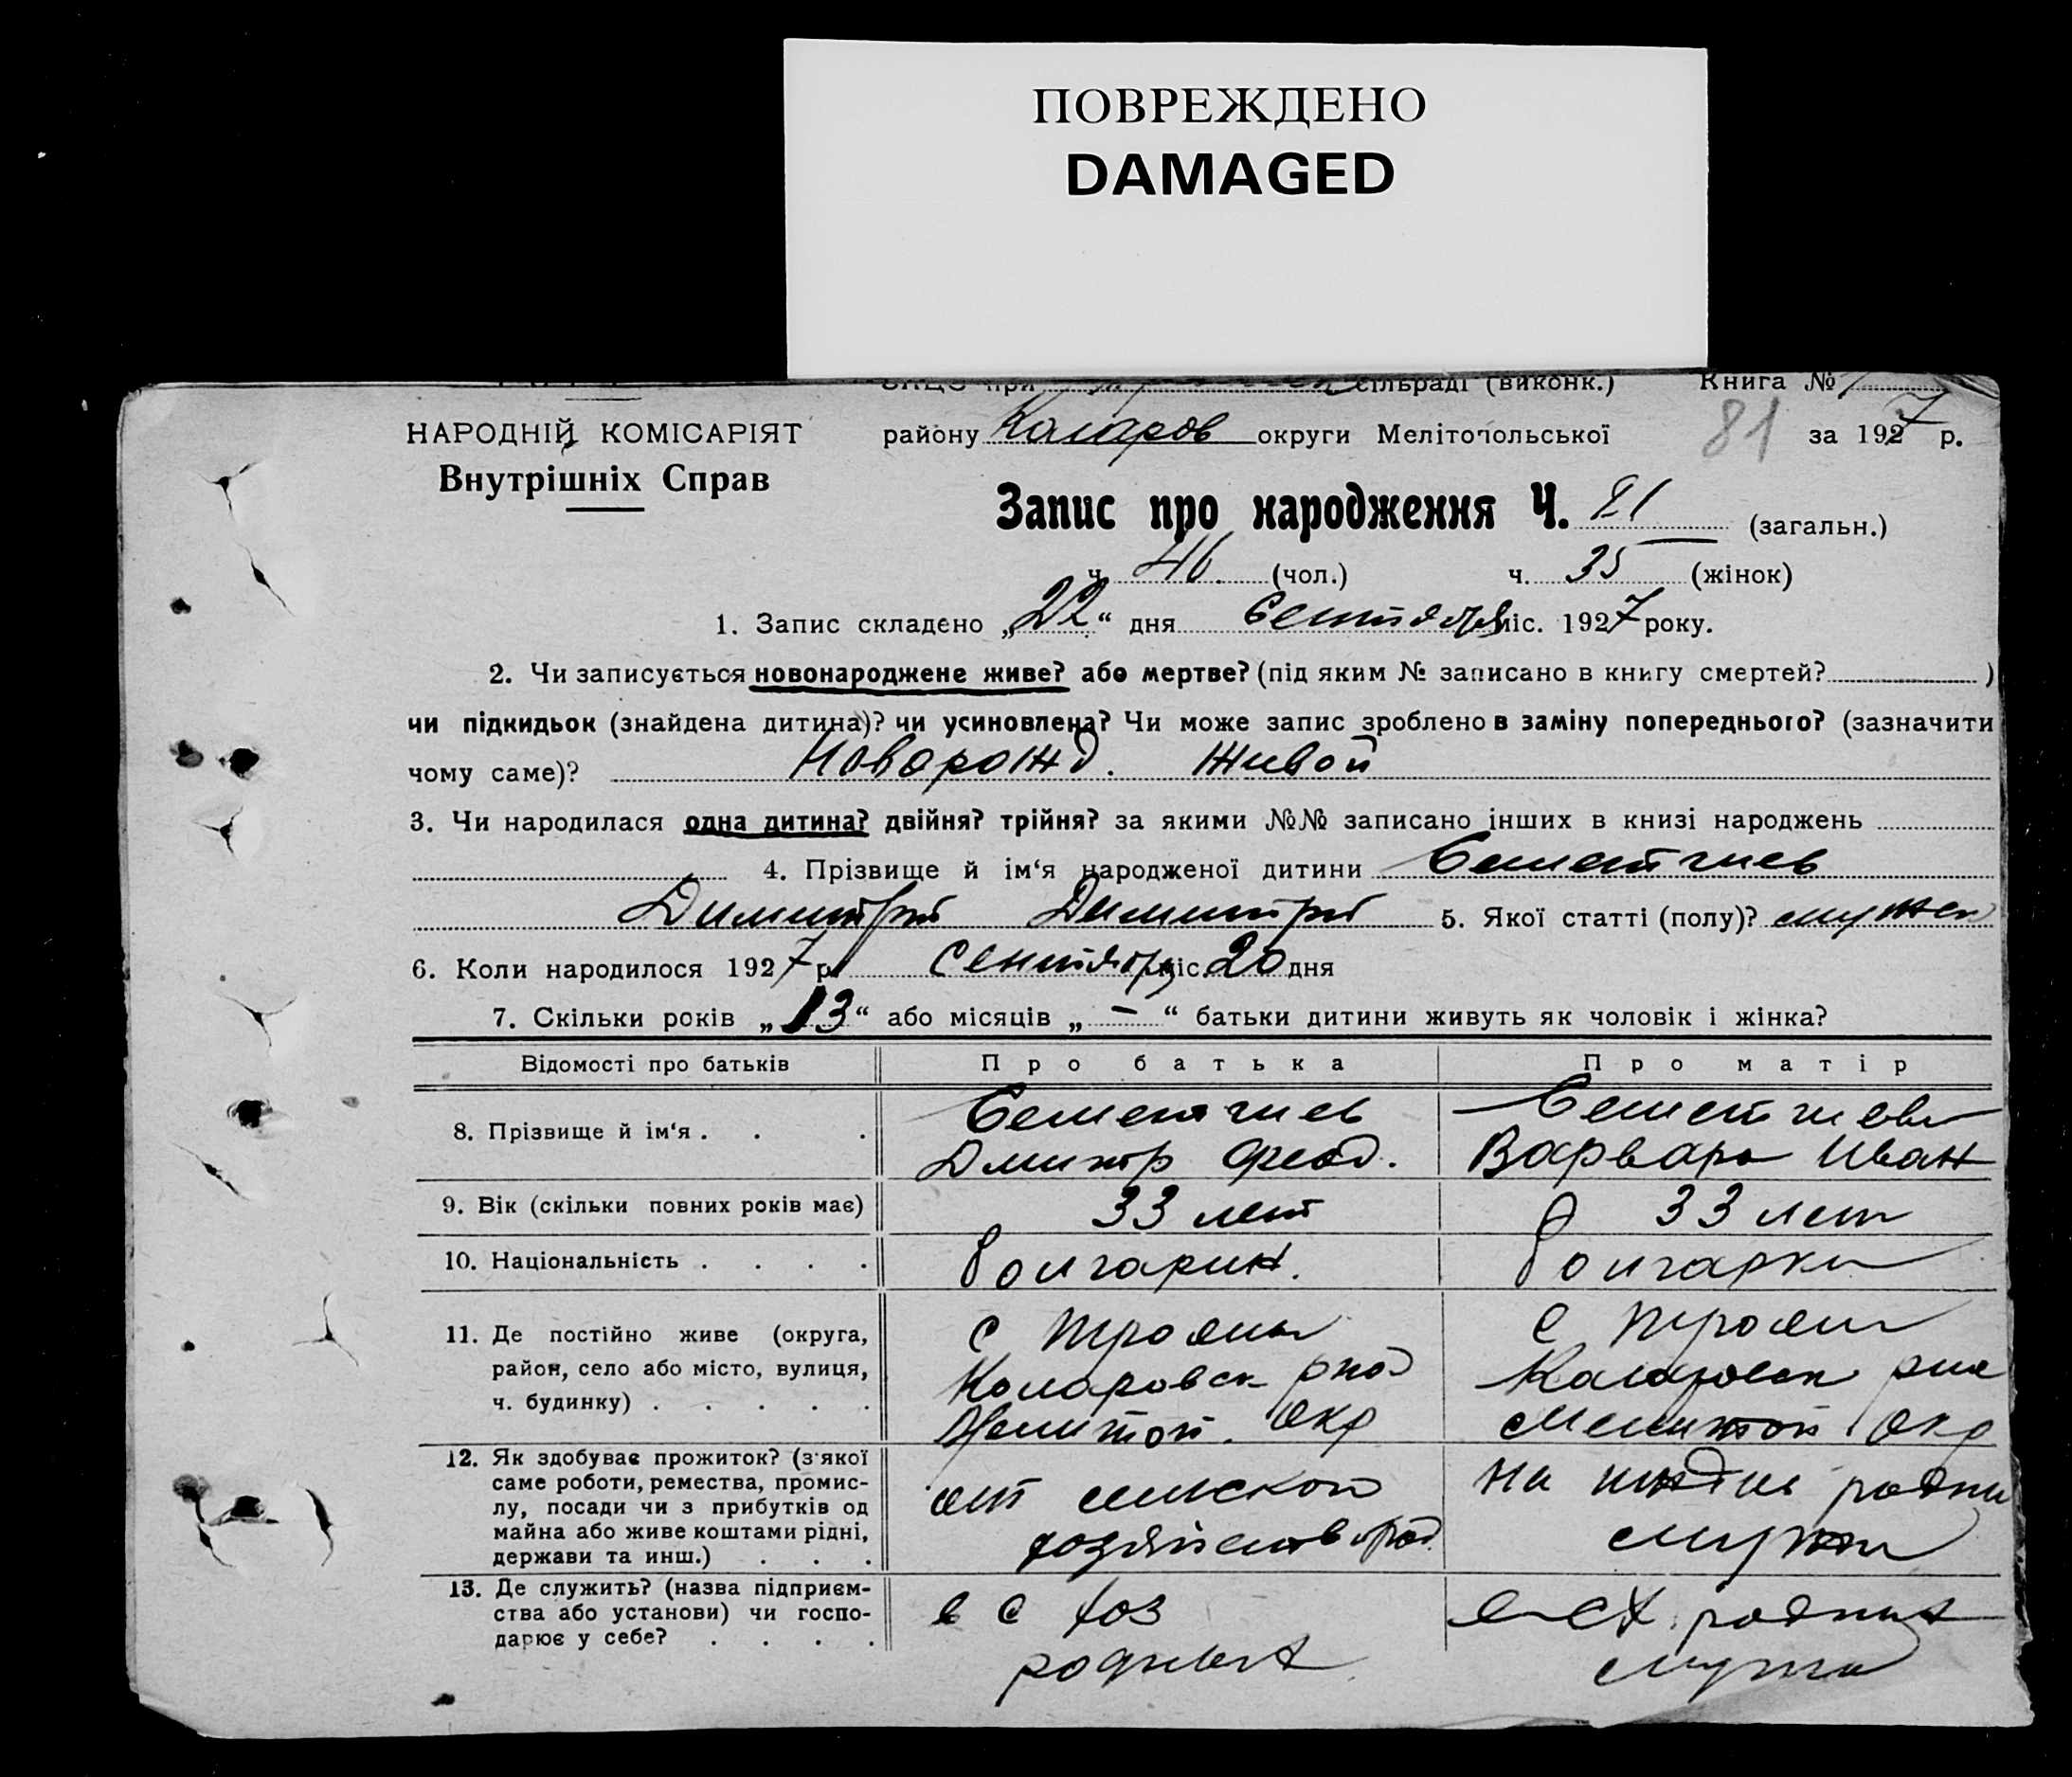 ПОВРЕЖДЕНО
DAMAGED
при сільраді (виконк.) Книга №
НАРОДНІЙ КОМІСАРІЯТ
Внутрішніх Справ
району Коларов округи Мелітопольської 81 за 1927 р.
Запис про народження Ч. 81 (загальн.)
ч. 46 (чол.) ч. 35 (жінок)
1. Запис складено „22“ дня Сентября міс. 1927 року.
2. Чи записується новонароджене живе? або мертве? (під яким № записано в книгу смертей? )
чи підкидьок (знайдена дитина)? чи усиновлена? Чи може запис зроблено в заміну попереднього? (зазначити
чому саме)? Новорожд. Живой
3. Чи народилася одна дитина? двійня? трійня? за якими №№ записано інших в книзі народжень
4. Прізвище й ім‘я народженої дитини
Димитрий Димитри 5. Якої статті (полу)? мужск
6. Коли народилося 1927 р. сентября міс. 20 дня
7. Скільки років „13“ або місяців „ – “ батьки дитини живуть як чоловік і жінка?
Відомості про батьків Про батька Про матір
8. Прізвище й ім‘я . . .
Дмитр Феод. Варвара Иван
9. Вік (скільки повних років має) 33 лет 33 лет
10. Національність . . . . болгарин. болгарка
11. Де постійно живе (округа, район, село або місто, вулиця, ч. будинку) . . . . .
с Трояны с Трояны
Коларовск рна Коларовск рна
Мелитоп. Окр Мелитоп Окр
12. Як здобуває прожиток? (з'якої саме роботи, ремества, промислу, посади чи з прибутків од майна або живе коштами рідні, держави та инш.) . . .
от сельского на родны
хозяйств мужа
13. Де служить? (назва підприємства або установи) чи господарює у себе? . . . .
в с хоз в сх. родных
родных мужа